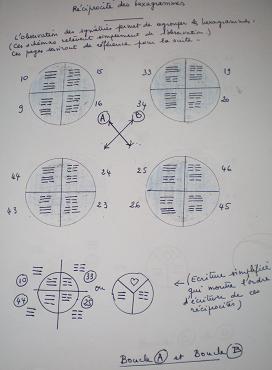 Réciprocité des hexagrammes
L'observation des symétries permet de regrouper les hexagrammes.
(Ces schémas relèvent simplement de l'observation.)
Ces pages serviront de référence pour la suite -
10 15
9 16
33 19
34 20
A B
44 24
43 23
25 46
26 45
10 33
44 25
ou
← (Ecriture simplifiée
qui montre l'ordre
d'écriture de ces
réciprocités)
Boucle A et Boucle B